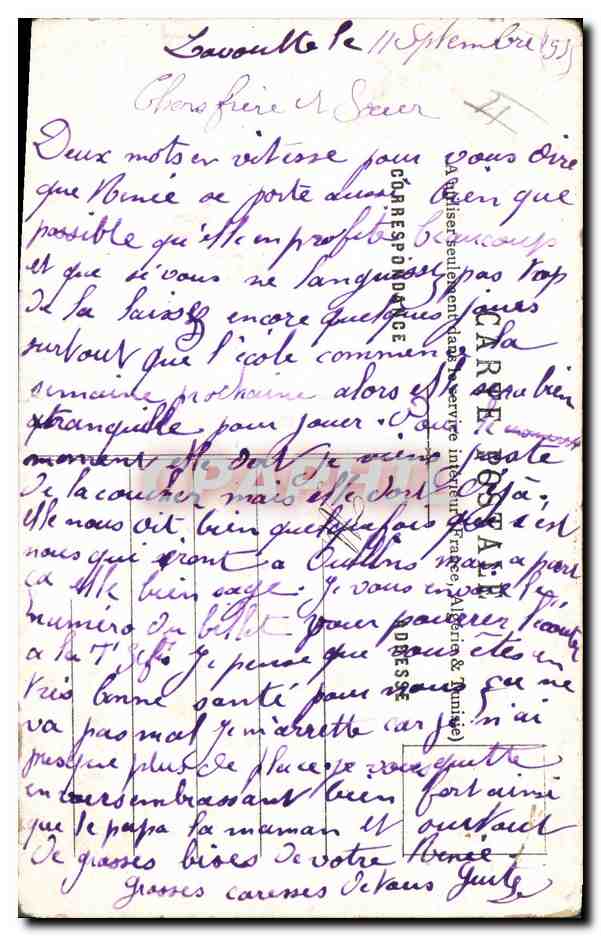 Lavoulte le 11 Septembre 1935
Chers frère et Sœur
Deux mots en vitesse pour vous dire
que Renée se porte aussi bien que
possible qu'elle en profite beaucoup
et que si vous ne languissez pas trop
de la laissez encore quelques jours
surtout que l'école commence la
semaine prochaine alors elle sera bien
tranquille pour jouer. Pour le moment
moment elle dort je viens juste
de la coucher mais elle dort déjà.
elle nous dit bien quelquefois que c'est
nous qui iront a Oullins mais a part
ça elle bien sage. Je vous envoie le
numéro du billet pour pourrez l'écouter
a la T.S.F. Je pense que vous êtes en
très bonne santé pour nous ça ne
va pas mal je m'arrette car je n'ai
presque plus de place je vous quitte
en vous embrassant bien fort ainsi
que le papa la maman et surtout
de grosses bises de votre Renée
Grosses caresses de tous
CARTE POSTALE
A utiliser seulement dans le service intérieur (France, Algérie & Tunisie)
CORRESPONDANCE
ADRESSE
CPAPHIL